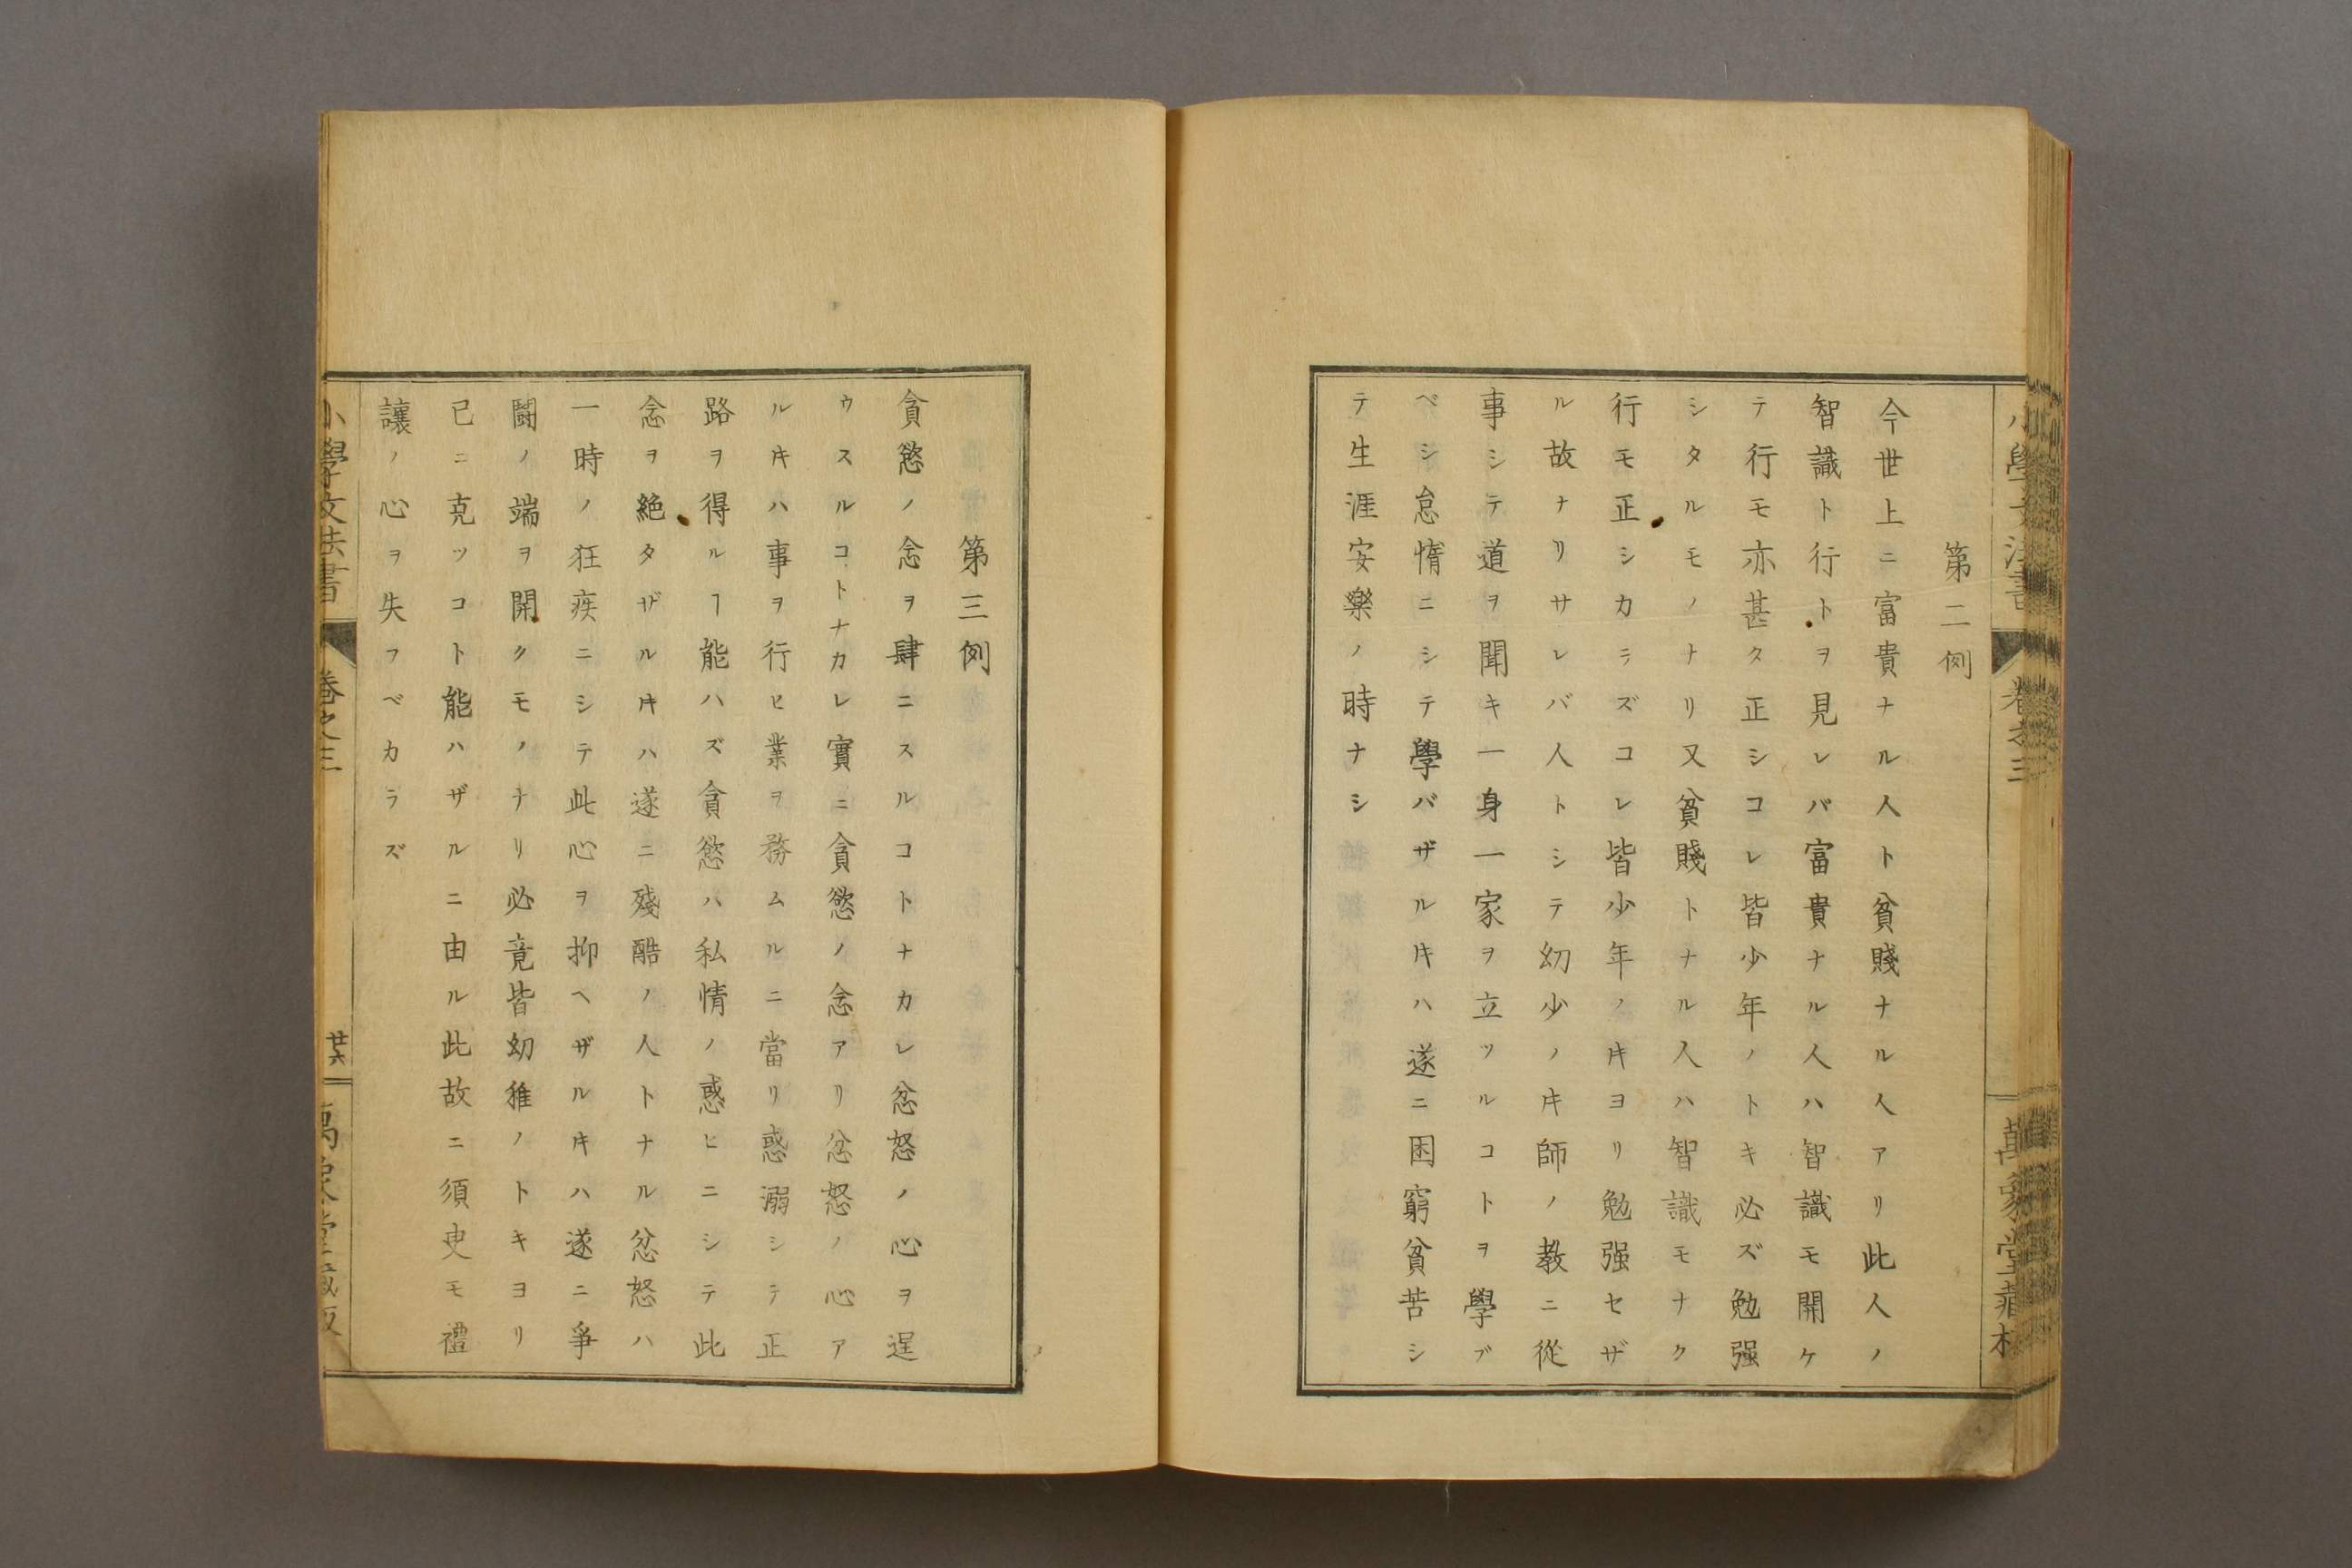 小學文法書 卷之三 萬象堂藏梓
第二例
今世上ニ富貴ナル人ト貧賤ナル人アリ此人ノ
智識ト行トヲ見レバ富貴ナル人ハ智識モ開ケ
テ行モ亦甚タ正シコレ皆少年ノトキ必ズ勉强
シタルモノナリ又貧賤トナル人ハ智識モナク
行モ正シカラズコレ皆少年ノ𪜈ヨリ勉强セザ
ル故ナリサレバ人トシテ幼少ノ𪜈師ノ教ニ從
事シテ道ヲ聞キ一身一家ヲ立ツルコトヲ學ブ
ベシ怠惰ニシテ學バザル𪜈ハ遂ニ困窮貧苦シ
テ生涯安樂ノ時ナシ
第三例
貪慾ノ念ヲ肆ニスルコトナカレ忿怒ノ心ヲ逞
ウスルコトナカレ實ニ貪慾ノ念アリ忿怒ノ心ア
ル𪜈ハ事ヲ行ヒ業ヲ務ムルニ當リ惑溺シテ正
路ヲ得ルヿ能ハズ貪慾ハ私情ノ惑ヒニシテ此
念ヲ絶タザル𪜈ハ遂ニ殘酷ノ人トナル忿怒ハ
一時ノ狂疾ニシテ此心ヲ抑ヘザル𪜈ハ遂ニ爭
鬪ノ端ヲ開クモノナリ必竟皆幼稚ノトキヨリ
己ニ克ツコト能ハザルニ由ル此故ニ須臾モ禮
讓ノ心ヲ失フベカラズ
小學文法書 卷之三 廿六 萬象堂藏版